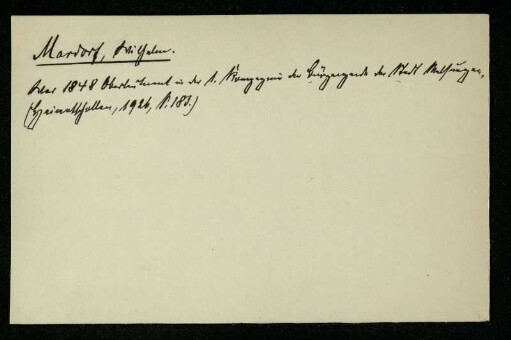 Mardorf, Wilhelm.
War 1848 Oberleutnant in der 1. Kompagnie der Bürgergarde der Stadt Melsungen,
(Heimatschollen, 1926, S. 183.)